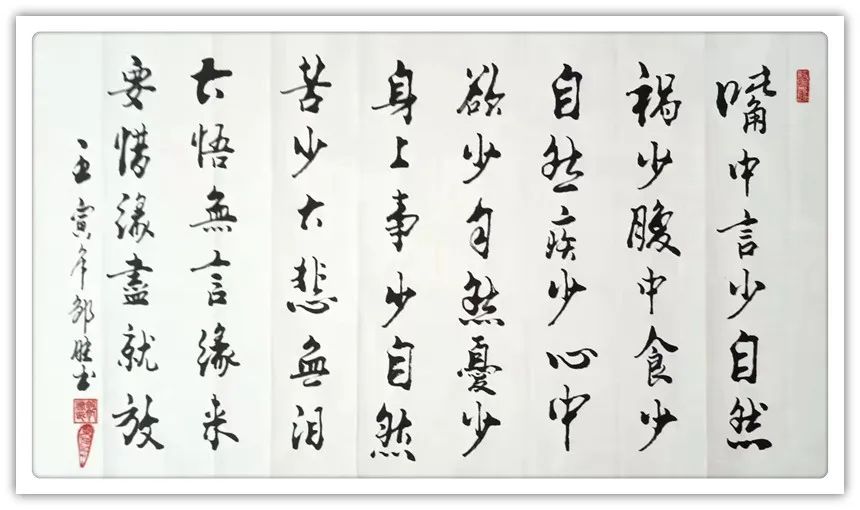 嘴中言少自然
禍少腹中食少
自然疾少心中
欲少自然憂少
身上事少自然
苦少大悲無泪
大悟無言緣来
要惜緣盡就放
壬寅年邹胜书